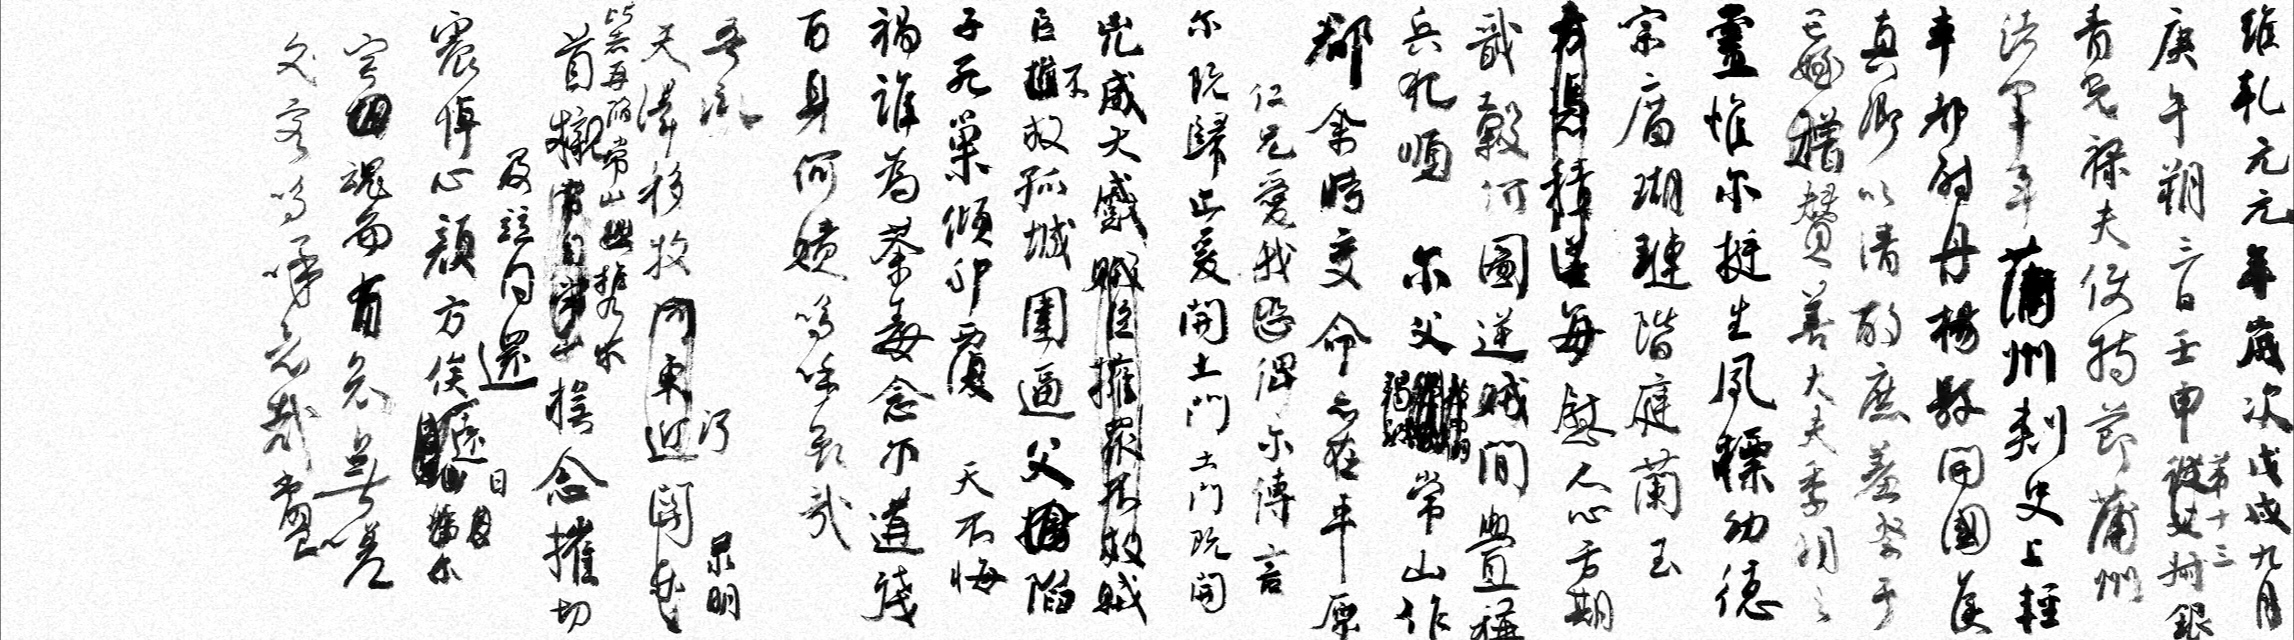 維乾元元年歲次戊戌九月
庚午朔三日壬申第十三叔銀
青光祿夫使持節蒲州
諸軍事蒲州刺史上輕
車都尉丹楊縣開國侯
真卿以清酌庶羞祭于
亡姪贈贊善大夫季明之
靈惟爾挺生夙標幼德
宗廟瑚璉階庭蘭玉
每慰人心方期
戩穀何圖逆賊閒釁稱
兵犯順 爾父常山作
郡余時受命亦在平原
仁兄愛我俾爾傳言
爾既歸止爰開土門土門既開
凶威大蹙賊臣擁眾不救賊
臣不救孤城圍逼父陷
子死巢傾卵覆 天不悔
禍誰為荼毒念爾遘殘
百身何贖嗚呼哀哉
吾承
天澤移牧河關泉明
比者再陷常山攜爾
首櫬及茲同還撫念摧切
震悼心顏方俟遠日卜爾
幽宅魂而有知無嗟
久客嗚呼哀哉尚饗